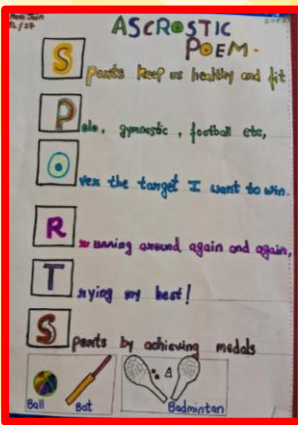 ASCROSTIC
POEM-
S
ports keep us healthy and fit
P
olo, gymnastic, football etc,
O
ver the target I want to win.
R
running around again and again,
T
rying my best!
S
ports by achieving medals
Ball
Bat
Badmintan